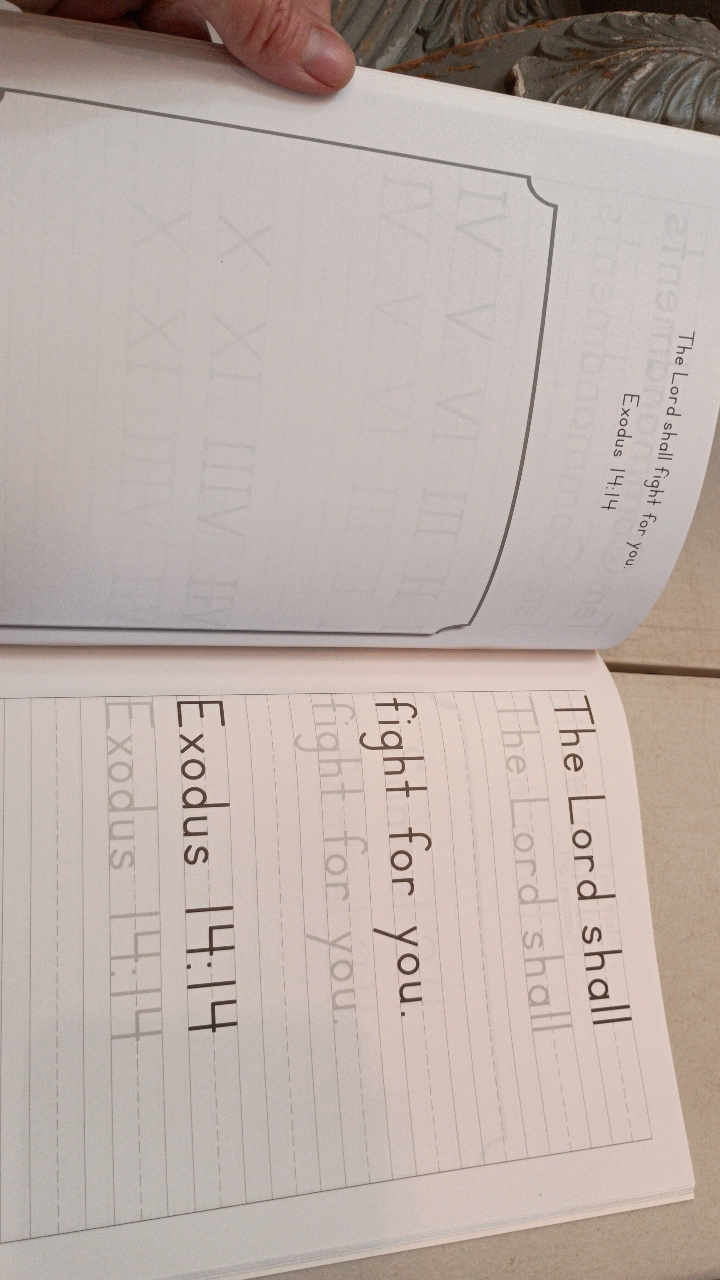 The Lord shall fight for you.
Exodus 14:14
The Lord shall
The Lord shall
fight for you.
fight for you.
Exodus 14:14
Exodus 14:14